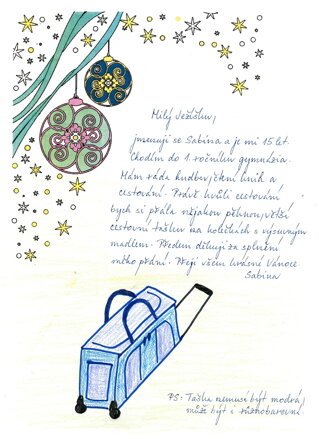 Milý Ježíšku,
jmenuji se Sabina a je mi 15 let.
Chodím do 1. ročníku gymnázia.
Mám ráda hudbu, čtení knih a
cestování. Právě kvůli cestování
bych si přála nějakou pěknou, větší
cestovní tašku na kolečkách s výsuvným
madlem. Předem děkuji za splnění
mého přání. Přeji všem krásné Vánoce.
Sabina
PS: Taška nemusí být modrá,
může být i různobarevná.